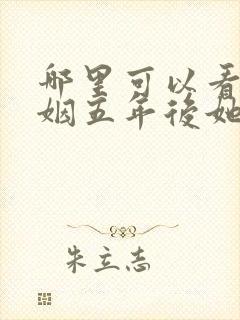 哪里可以看
姻五年後她
朱立志